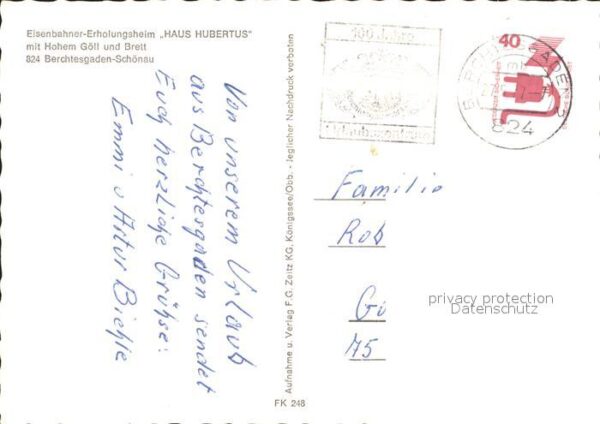 Eisenbahner-Erholungsheim „HAUS HUBERTUS"
mit Hohem Göll und Brett
824 Berchtesgaden-Schönau
Von unserem Urlaub
aus Berchtesgaden sendet
Euch herzliche Grüße:
Emmi u Artur Biehle
Aufnahme u. Verlag F.G. Zeitz KG, Königssee/Obb. - Jeglicher Nachdruck verboten
FK 248
100 Jahre
40
BERCHTESGADEN
824
Familie
Rob
Gi
75
privacy protection
Datenschutz